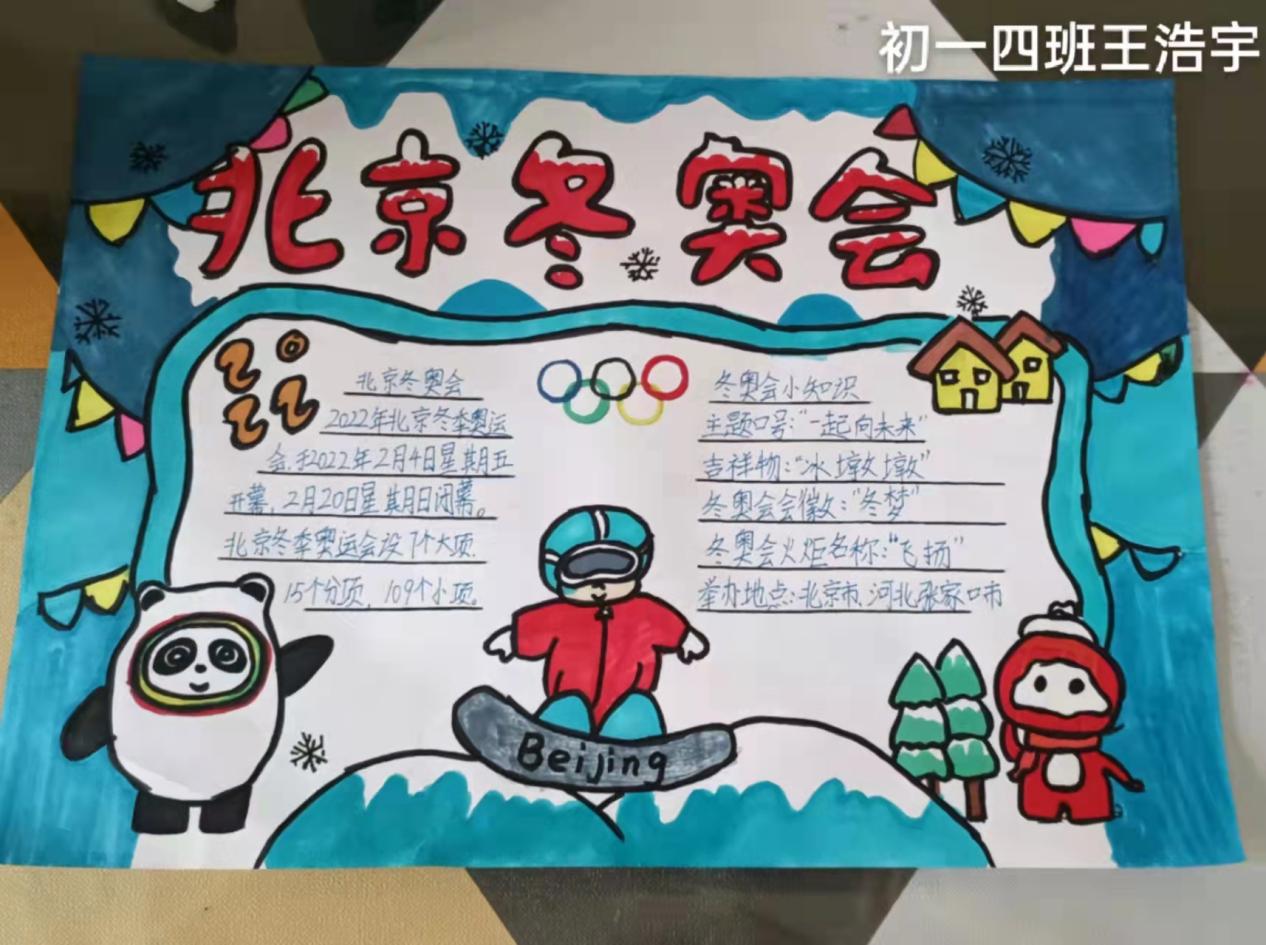 初一四班王浩宇
北京冬奥会
20
22
北京冬奥会
2022年北京冬季奥运
会,于2022年2月4日星期五
开幕,2月20日星期日闭幕。
北京冬季奥运会设7个大项,
15个分项,109个小项。
冬奥会小知识
主题口号:“一起向未来”
吉祥物:“冰墩墩”
冬奥会会徽:“冬梦”
冬奥会火炬名称:“飞扬”
举办地点:北京市,河北张家口市
Beijing